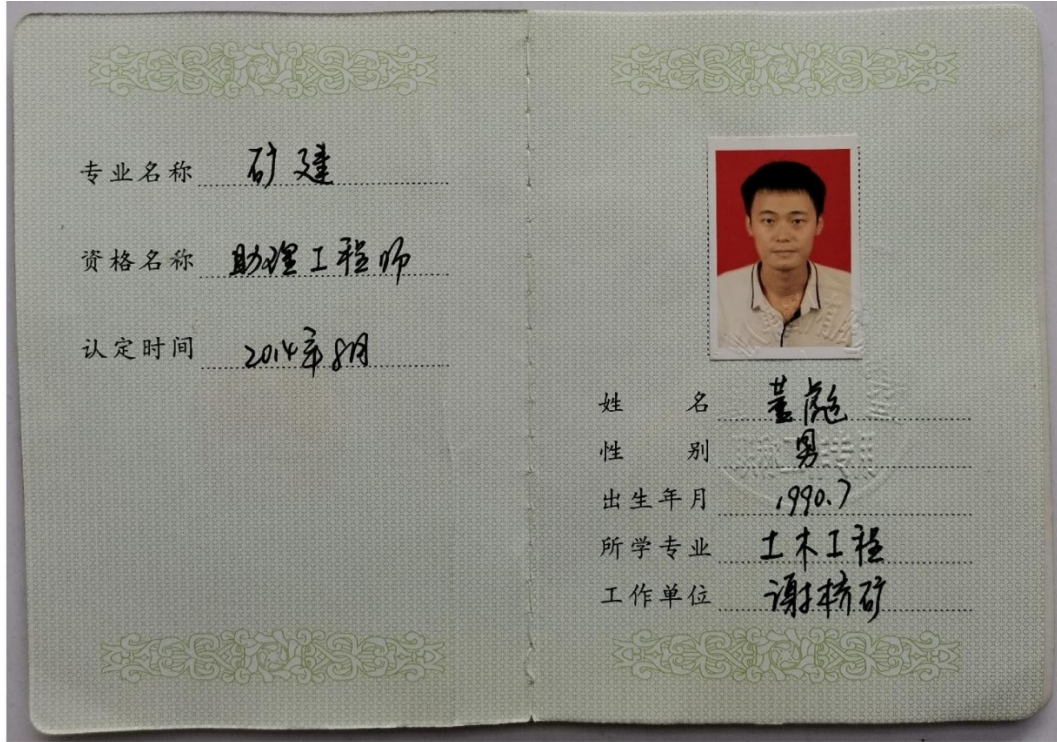 专业名称 矿建
资格名称 助理工程师
认定时间 2014年8月
姓 名 董彪
性 别 男
出生年月 1990.7
所学专业 土木工程
工作单位 谢桥矿
职称工作专用